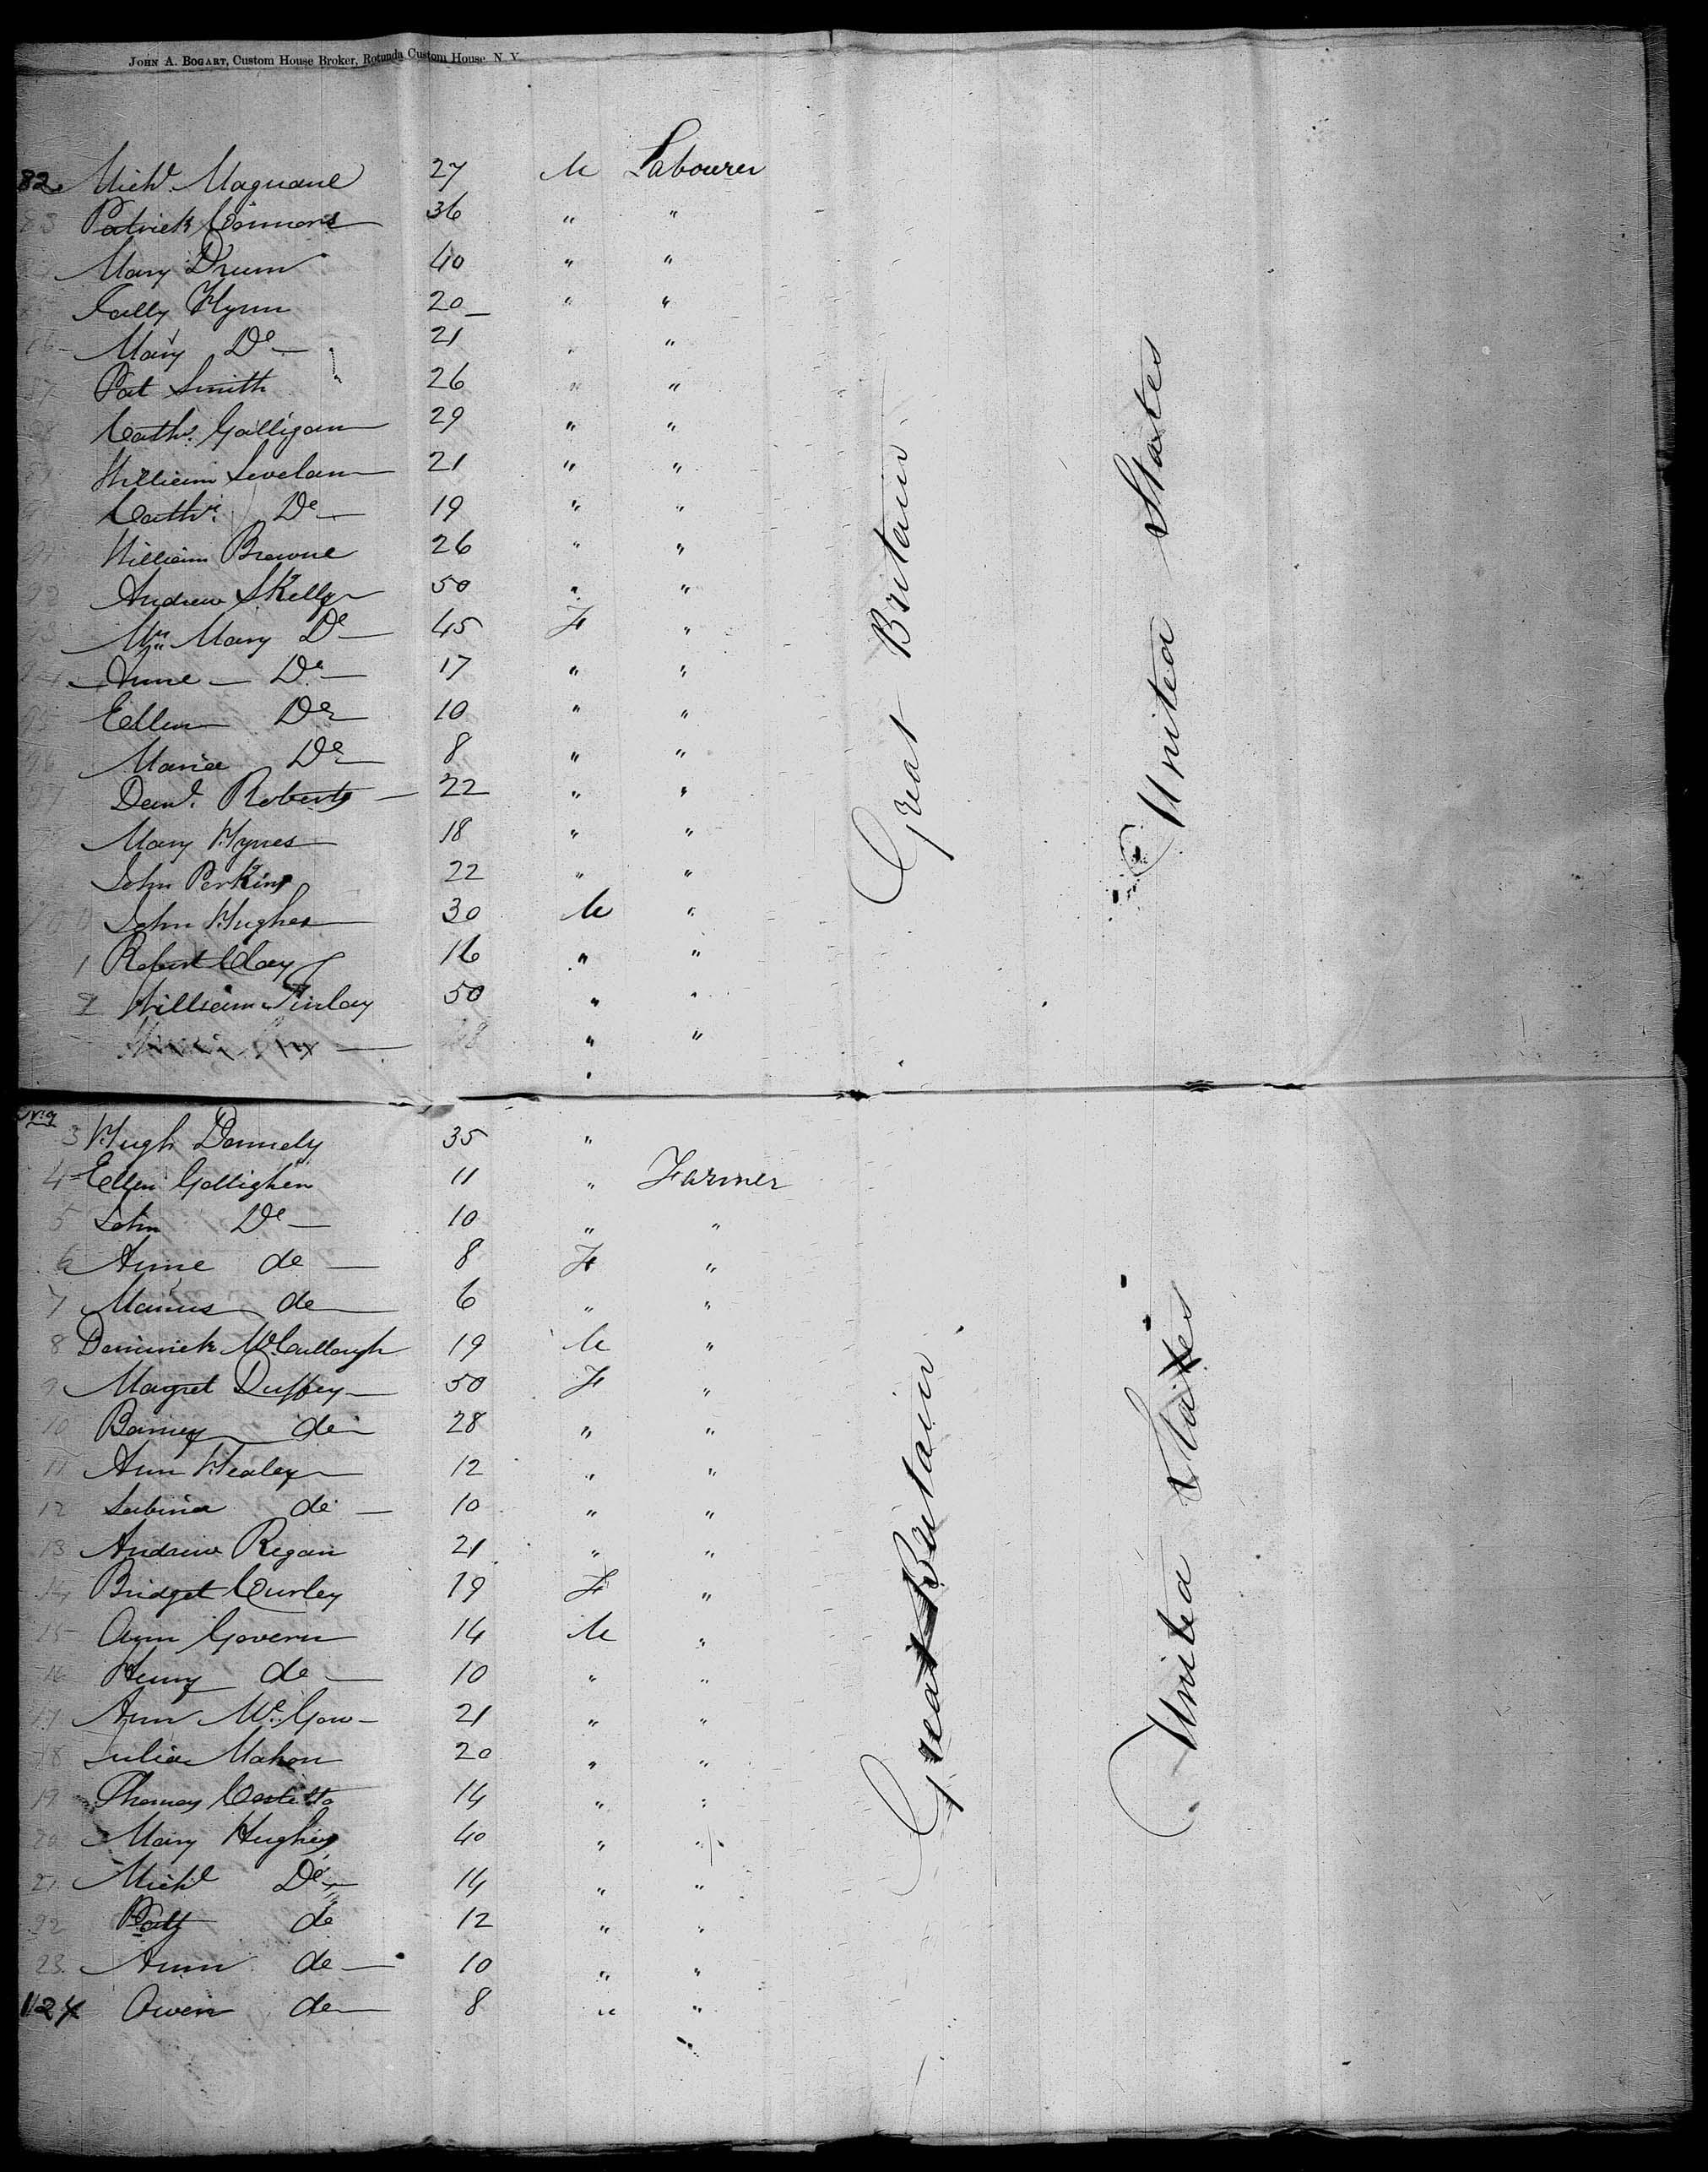 JOHN A. BOGART, Custom House Broker, Rotunda Custom House N. Y.
82 Michl. Magnane 27 M Labourer
83 Patrick Connors 36 " "
Mary Drum 40 " "
Flynn 20 " "
86 Mary Do 21 " "
87 Pat Smith 26 " "
Cathe. Galligan 29 " "
William Levelan 21 " "
Cathe. Do 19 " "
91 William Browne 26 " "
92 Andrew Skelly 50 " "
93 Mrs. Mary Do 45 F "
94 Anne Do 17 " "
95 Ellen Do 10 " "
96 Maria Do 8 " "
97 Danl. Roberts 22 " "
Mary Hynes 18 " "
John Perkins 22 " "
John Hughes 30 M "
1 Robert Clay 16 " "
2 William Finlay 50 " "
" "
3 Hugh Donnely 35 "
4 Ellen Gollighen 11 " Farmer
5 John Do 10 " "
6 Anne do 8 F "
7 Manus do 6 " "
8 Dominick McCullough 19 M "
9 Magret Duffey 50 F "
10 Barney do 28 " "
11 Ann Healey 12 " "
12 Sabina do 10 " "
13 Andrew Regan 21 " "
14 Bridget Curley 19 F "
15 Ann Govern 14 M "
16 Henry do 10 " "
17 Ann McGow 21 " "
18 Julia Mahon 20 " "
19 Thomas Costello 14 " "
20 Mary Hughes 40 " "
21 Michl Do 14 " "
22 Patt do 12 " "
23 Ann do 10 " "
1124 Owen do 8 " "
Great Britain
United States
Great Britain
United States